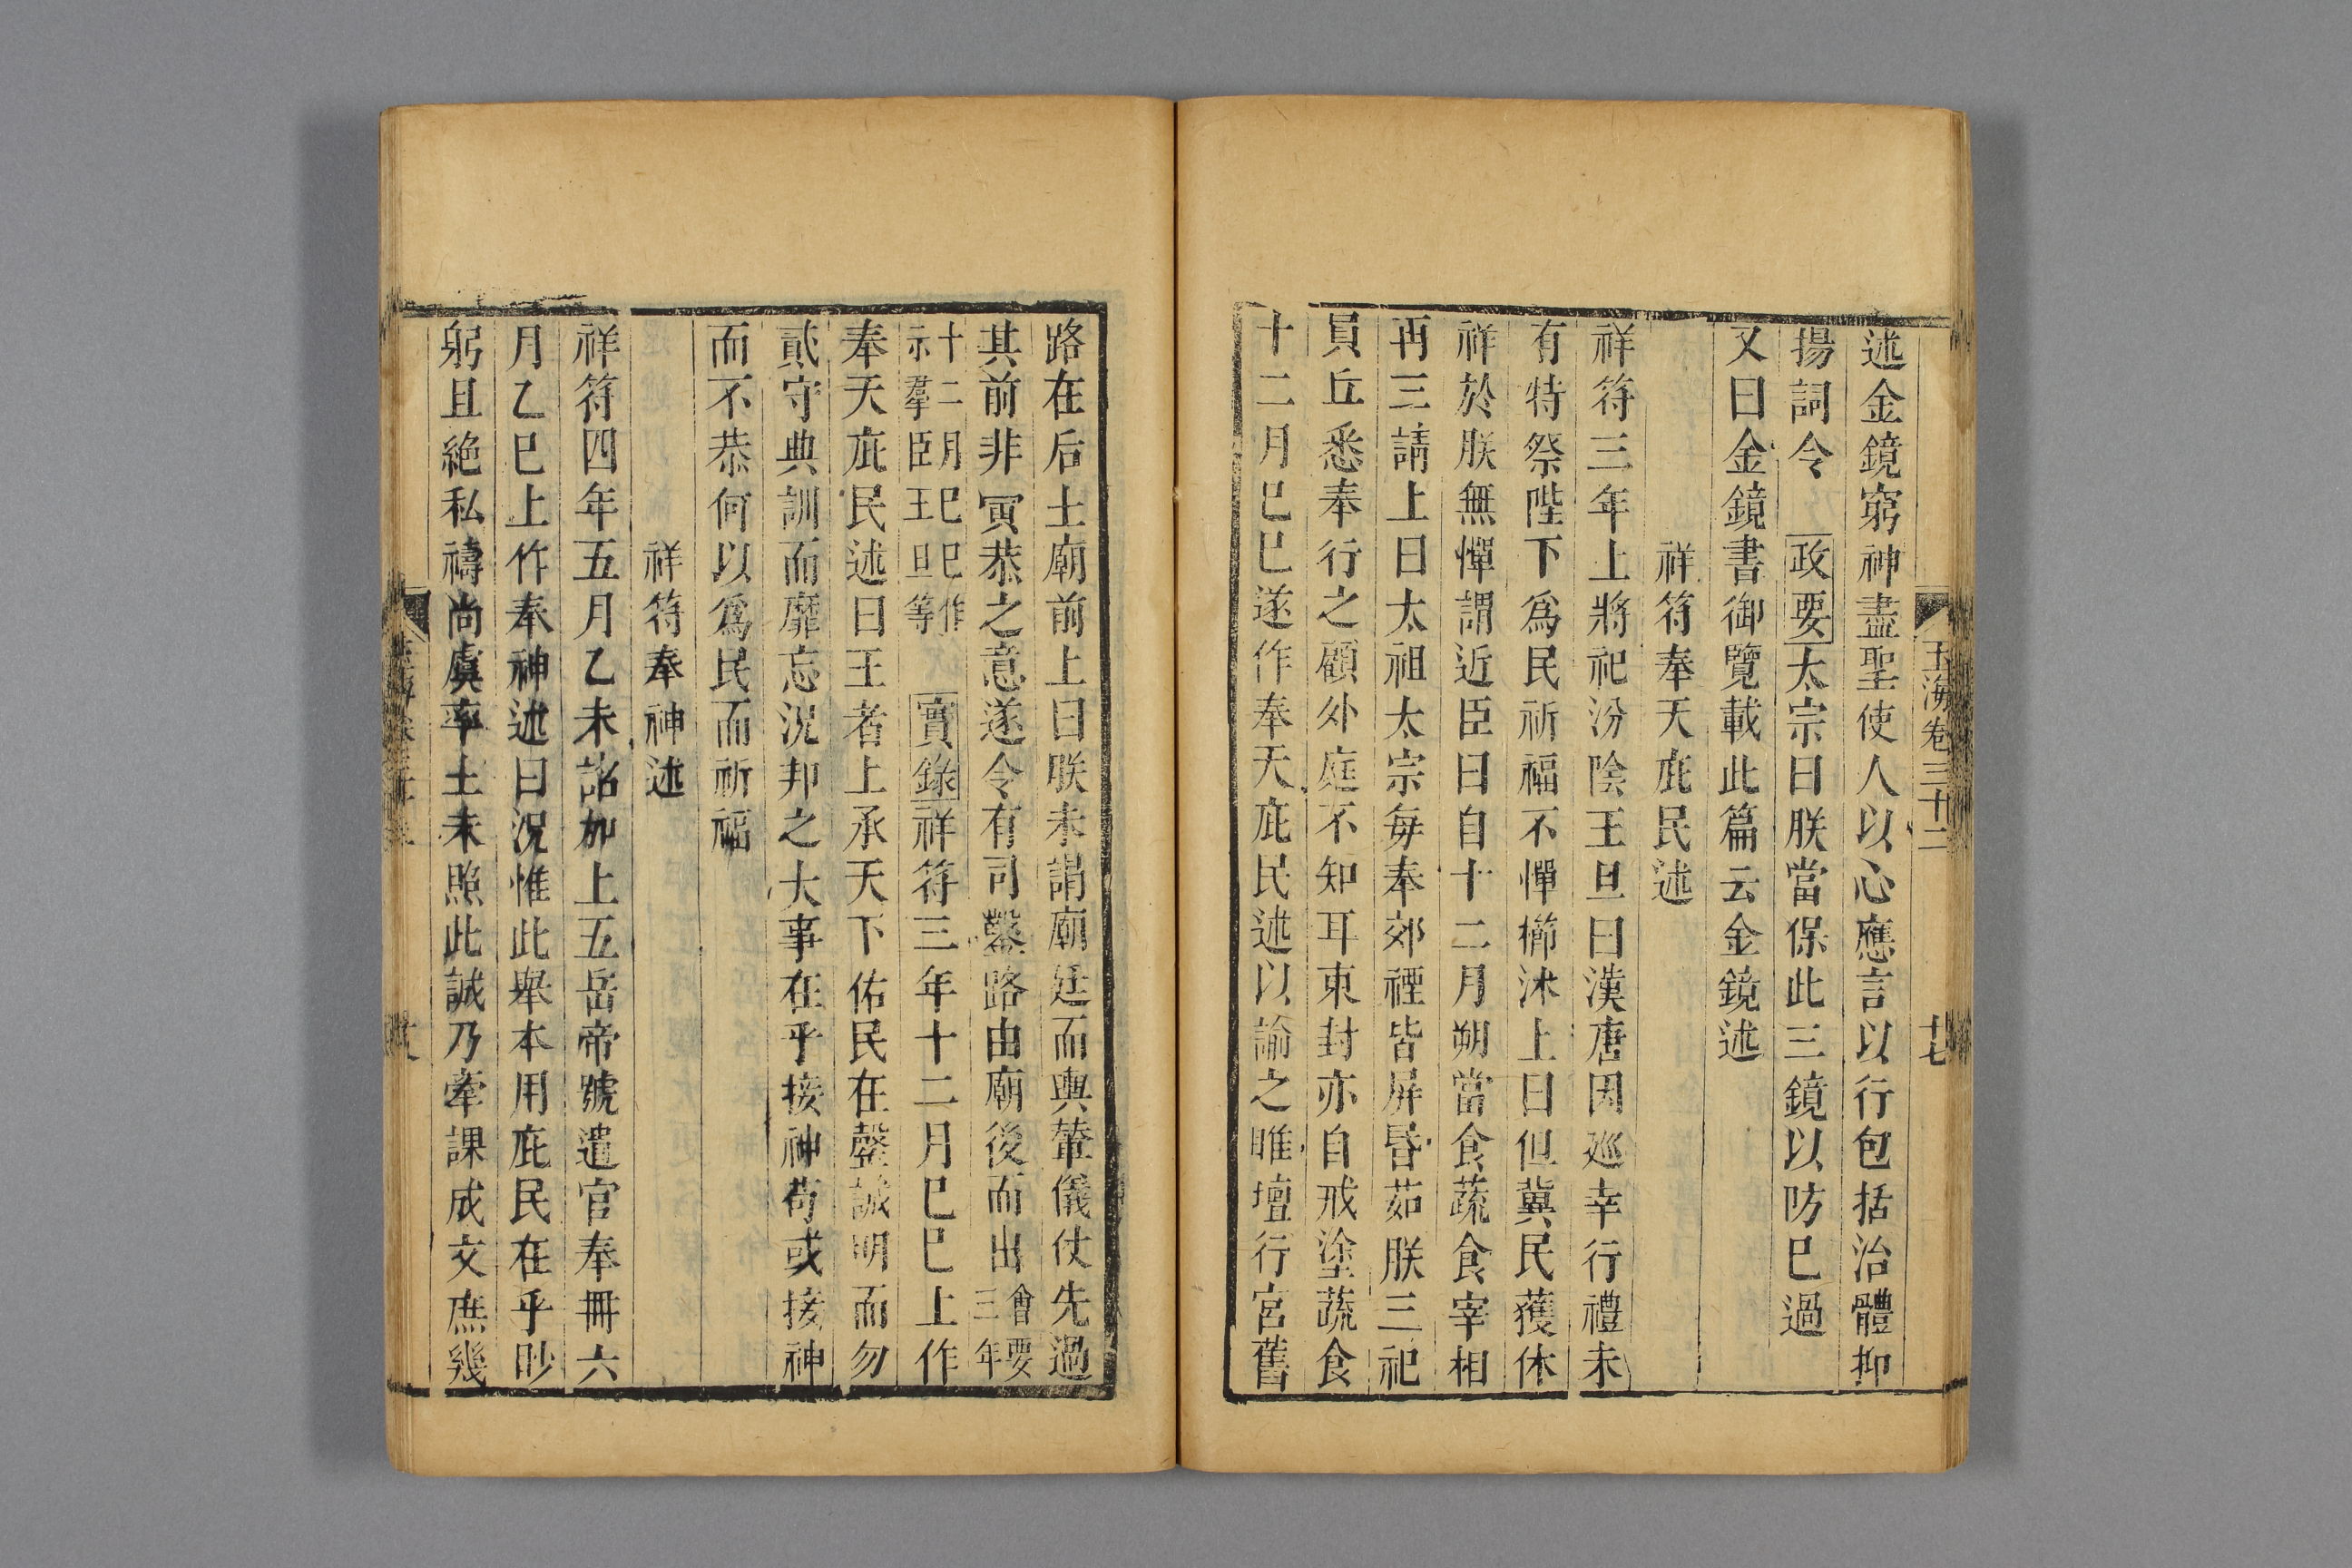 玉海卷三十二
十七
述金鏡窮神盡聖使人以心應言以行包括治體抑
揚詞令政要太宗曰朕當保此三鏡以防己過
又曰金鏡書御覽載此篇云金鏡述
祥符奉天庇民述
祥符三年上將祀汾陰王旦曰漢唐因巡幸行禮未
有特祭陛下爲民祈福不憚櫛沐上曰但冀民獲休
祥於朕無憚謂近臣曰自十二月朔當食蔬食宰相
再三請上曰太祖太宗每奉郊禋皆屏昬茹朕三祀
員丘悉奉行之顧外庭不知耳東封亦自戒塗蔬食
十二月己巳遂作奉天庇民述以諭之睢壇行宮舊
路在后土廟前上曰朕未謁廟廷而輿輦儀仗先過
其前非寅恭之意遂令有司鑿路由廟後而出會要三年
十二月己巳作示羣臣王旦等實錄祥符三年十二月己巳上作
奉天庇民述曰王者上承天下佑民在罄誠明而勿
貳守典訓而靡忘況邦之大事在乎接神苟或接神
而不恭何以爲民而祈福
祥符奉神述
祥符四年五月乙未詔加上五岳帝號遣官奉冊六
月乙巳上作奉神述曰況惟此舉本用庇民在乎眇
躬且絶私禱尚虞率土未照此誠乃牽課成文庶幾